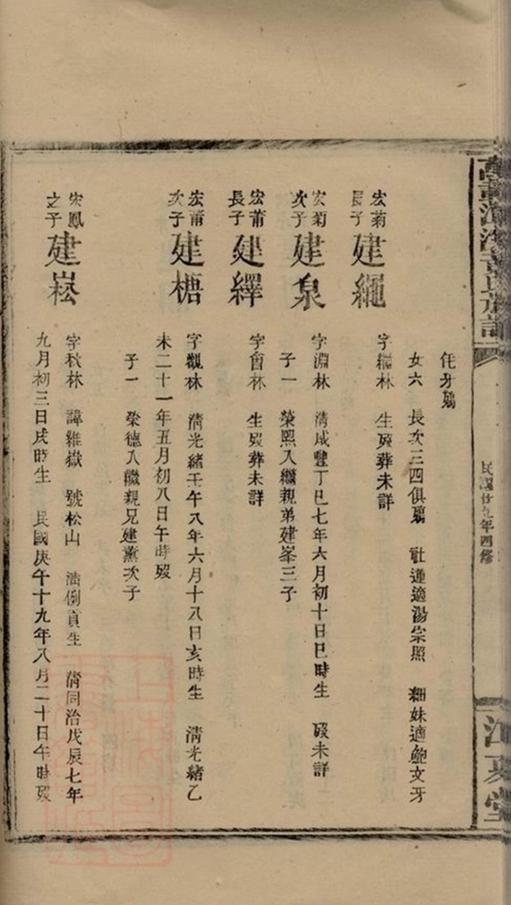 黃氏族譜
民國廿九年四修
江夏堂
任牙殤
女六 長次三四俱殤 社蓮適湯宗照 細妹適鮑文牙
宏菊長子 建繩 字繩林 生歿葬未詳
宏菊次子 建泉 字淵林 清咸豐丁巳七年六月初十日巳時生 歿未詳
子一 榮熙入繼親弟建峯三子
宏莆長子 建繹 字會林 生歿葬未詳
宏莆次子 建榶 字觀林 清光緒壬午八年六月十八日亥時生 清光緒乙
未二十一年五月初八日午時歿
子一 榮德入繼親兄建薰次子
宋鳳之子 建崧 字秋林 諱維嶽 號松山 清例貢生 清同治戊辰七年
九月初三日戌時生 民國庚午十九年八月二十日午時歿